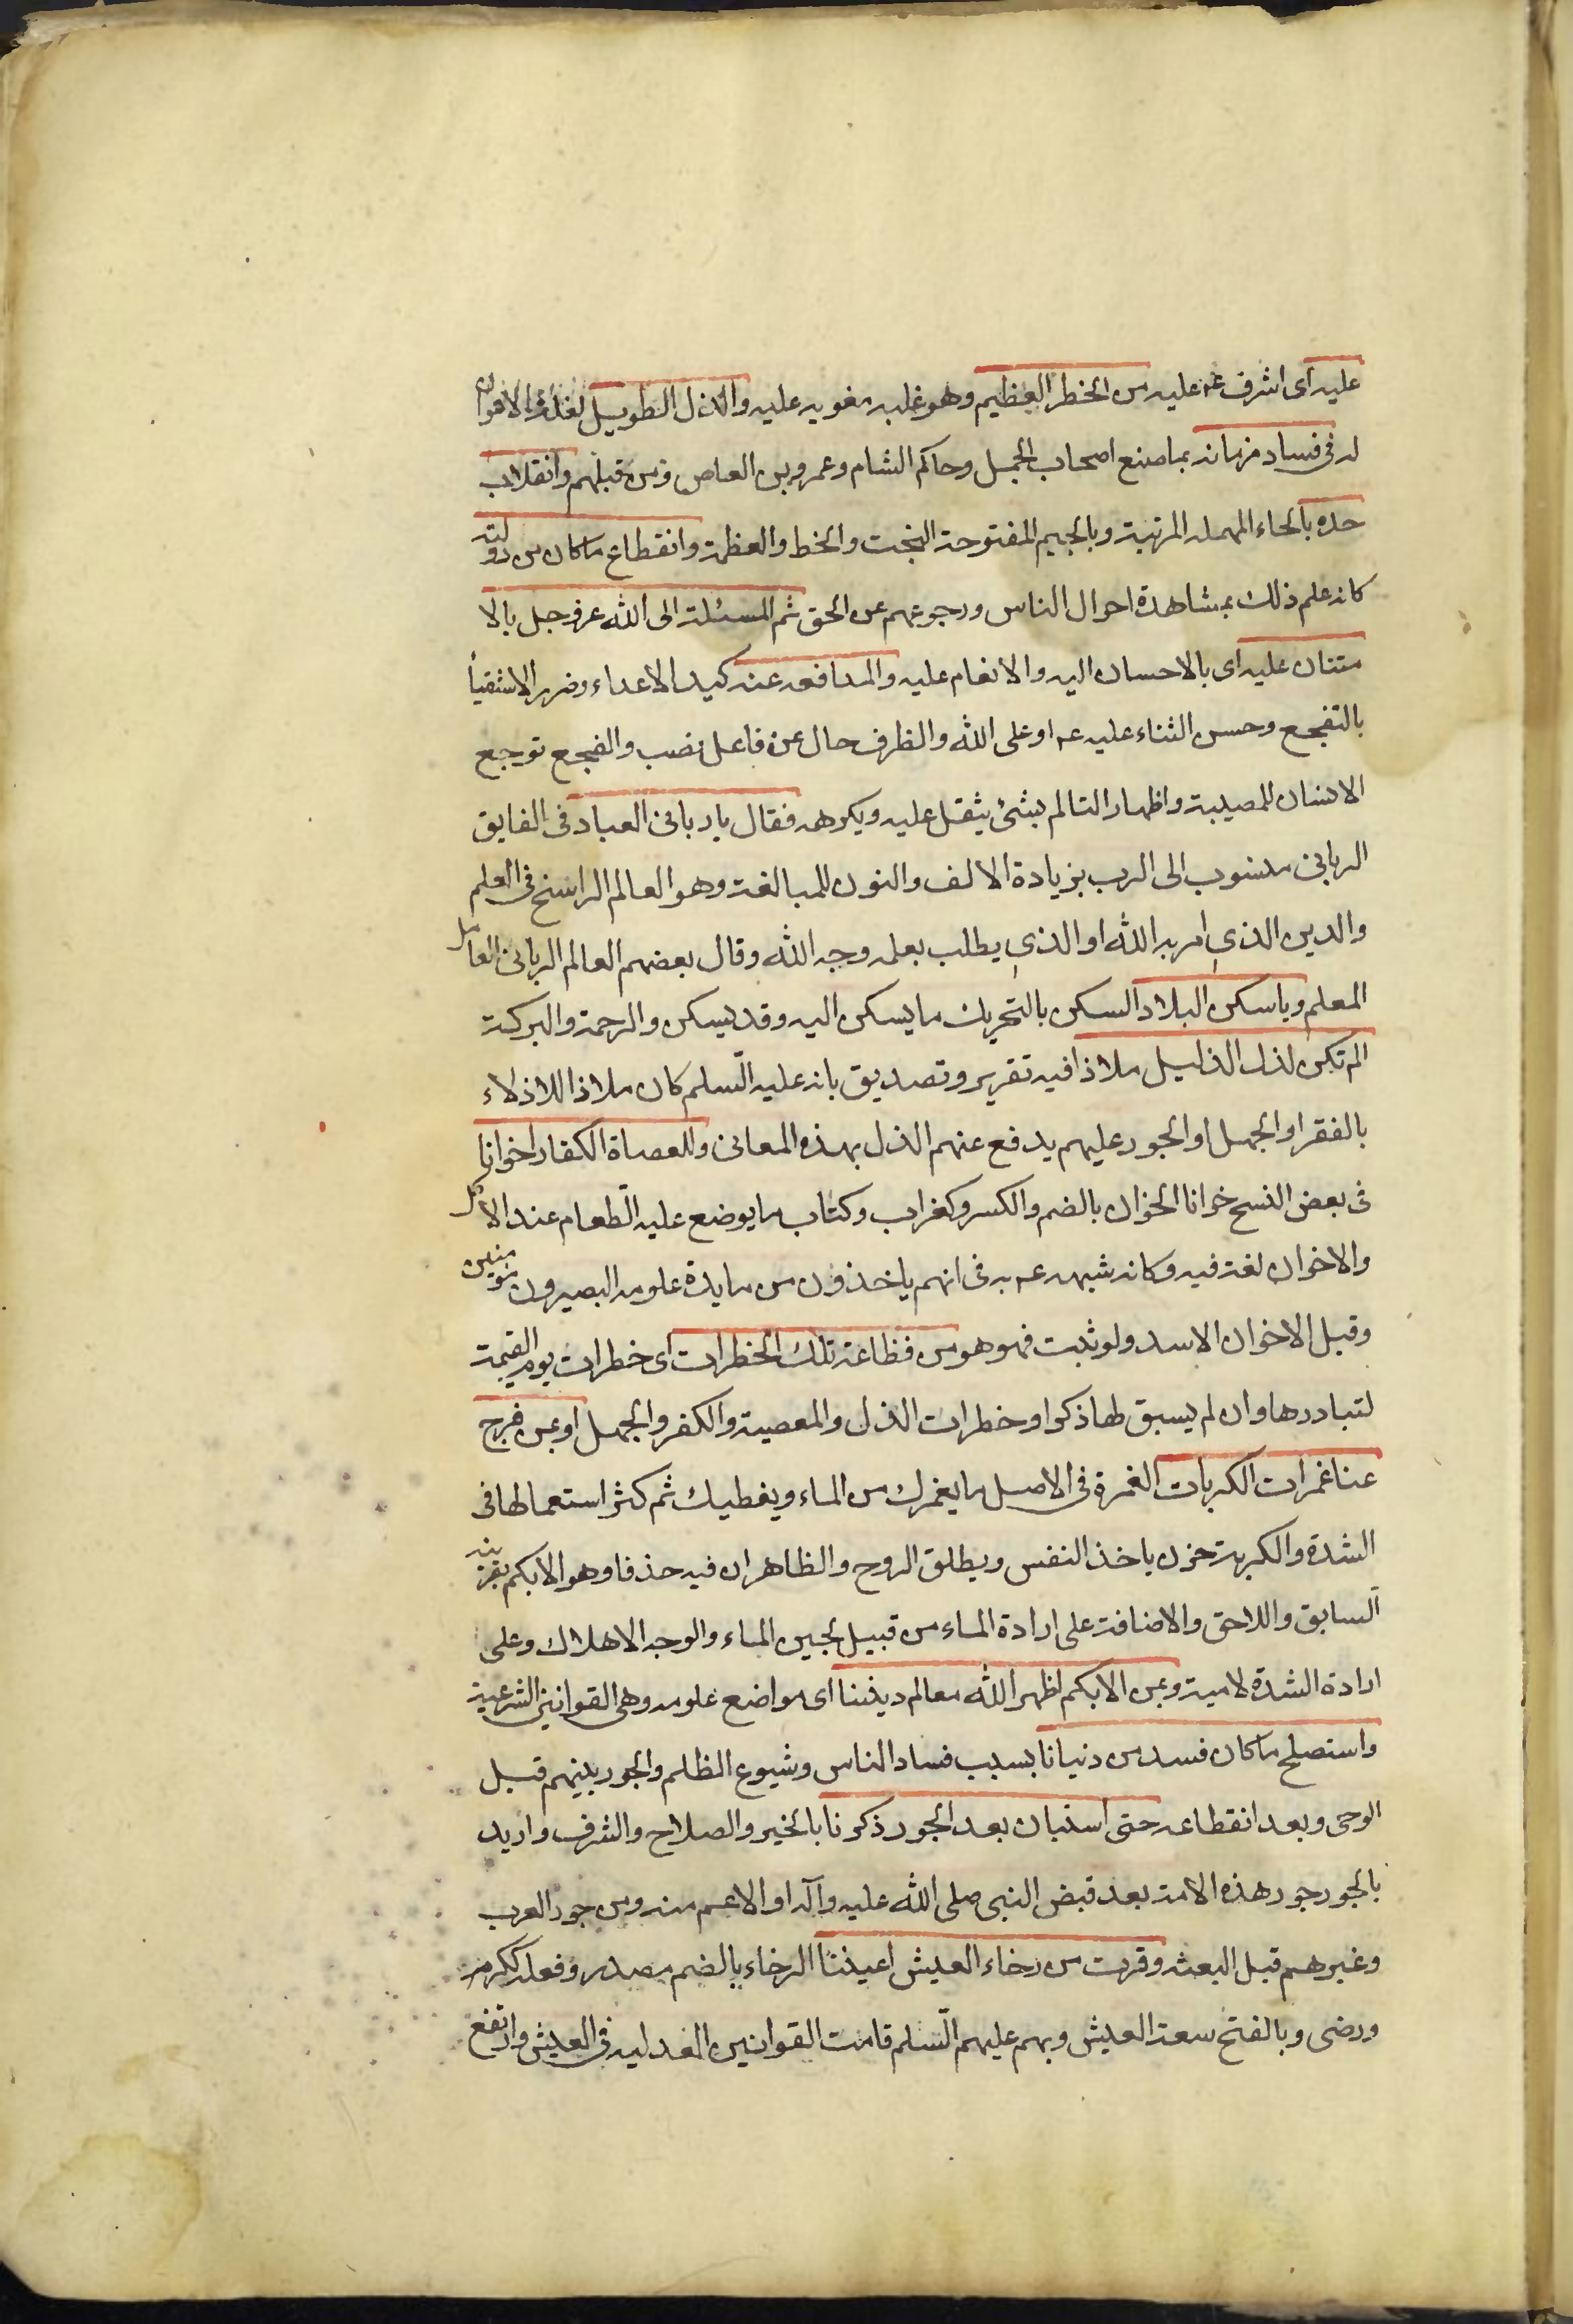 عليه اى اشرف عم عليه من الخطر العظيم وهو غلبه مغويه عليه والذل الطويل
له فى فساد زمانه بما صنع اصحاب الجمل وحاكم الشام وعمرو بن العاص ومن قبلهم وانقلاب
حده بالحاء المهمله المرتبة وبالجيم المفتوحة البخت والخط والعظمة وانقطاع ما كان من دولته
كانه علم ذلك بمشاهدة احوال الناس ورجوعهم عن الحق ثم المسئلة الى الله عز وجل بالا
متنان عليه اى بالاحسان اليه والانعام عليه والمدافعه عنه كيد الاعداء وضرر الاشقيأ
بالتفجع وحسن الثناء عليه عم او على الله والظرف حال عن فاعل نصب والفجع توجع
الانسان للمصيبة واظهار التالم بشئ يثقل عليه ويكرهه فقال يا ربانى العباد فى الفايق
الربانى منسوب الى الرب بزيادة الالف والنون للمبالغة وهو العالم الراسخ فى العلم
والدين الذى امر به الله او الذى يطلب بعلمه وجه الله وقال بعضهم العالم الربانى العامل
المعلم ويا سكن البلاد السكن بالتحريك ما يسكن اليه وقد يسكن والرحمة والبركة
الم تكن لذل الذليل ملاذا فيه تقرير وتصديق بانه عليه السّلم كان ملاذا للاذلاء
بالفقر او الجهل او الجور عليهم يدفع عنهم الذل بهذه المعانى وللعصاة الكفار اخوانا
فى بعض النسخ خوانا الخوان بالضم والكسر وكغراب وكتاب ما يوضع عليه الطّعام عند الاكل
والاخوان لغة فيه وكانه شبهه عم به فى انهم ياخذون من مايدة علومه البصيرون مؤمنين
وقيل الاخوان الاسد ولو ثبت فهو هو من فظاعة تلك الخطرات اى خطرات يوم القيمة
لتبادرها وان لم يسبق لها ذكر او خطرات الذل والمعصية والكفر والجهل او بمن فرج
عنا غمرات الكربات الغمرة فى الاصل ما يغمرك من الماء ويغطيك ثم كثر استعمالها فى
الشدة والكربة حزن ياخذ النفس ويطلق الروح والظاهر ان فيه حذفا وهو الا بكم بقرينه
السابق واللاحق والاضافة على ارادة الماء من قبيل لجين الماء والوجه الاهلاك وعلى
ارادة الشدة لامية وبمن الا بكم اظهر الله معالم ديننا اى مواضع علومه وهى القوانين الشرعية
واستصلح ما كان فسد من دنيانا بسبب فساد الناس وشيوع الظلم والجور بينهم قبل
الوحى وبعد انقطاعه حتى استبان بعد الجور ذكرنا بالخير والصلاح والشرف واريد
بالجور جور هذه الامة بعد قبض النبى صلى الله عليه وآله او الاعم منه ومن جور العرب
وغيرهم قبل البعثه وقرت من رخاء العيش اعيننا الرخاء بالضم مصدر وفعله ككرم
ورضى وبالفتح سعة العيش وبهم عليهم السّلم قامت القوانين العدليه فى العيش وارتفع